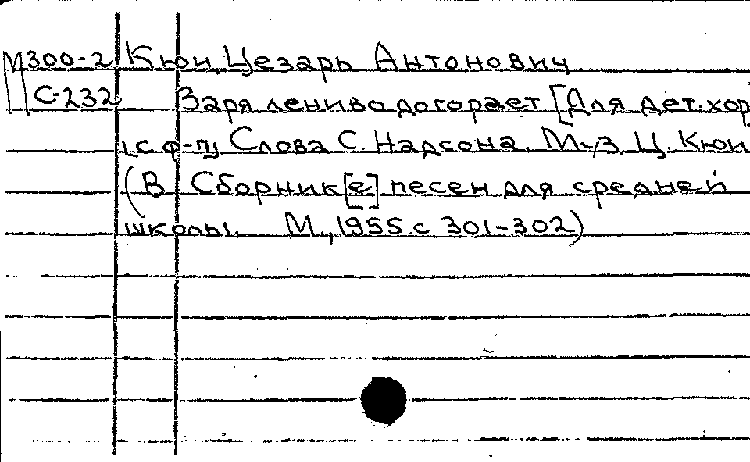 М300-2 Кюи, Цезарь Антонович
С-232 Заря лениво догорает [Для дет. хор
(с ф-п) Слова С. Надсона. М-з. Ц. Кюи
(В Сборник[е] песен для средней
школы. М., 1955. с 301-302)